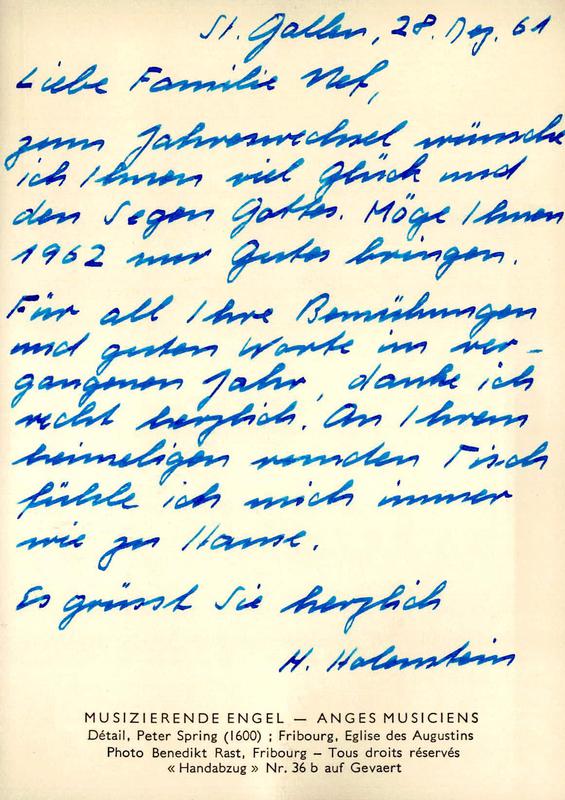 St. Gallen, 28. Dez. 61
Liebe Familie Nef,
zum Jahreswechsel wünsche
ich Ihnen viel Glück und
den Segen Gottes. Möge Ihnen
1962 nur Gutes bringen.
Für all Ihre Bemühungen
und guten Worte im ver-
gangenen Jahr, danke ich
recht herzlich. An Ihrem
heimeligen runden Tisch
fühle ich mich immer
wie zu Hause.
Es grüsst Sie herzlich
H. Holenstein
MUSIZIERENDE ENGEL — ANGES MUSICIENS
Détail, Peter Spring (1600) ; Fribourg, Eglise des Augustins
Photo Benedikt Rast, Fribourg – Tous droits réservés
« Handabzug » Nr. 36 b auf Gevaert